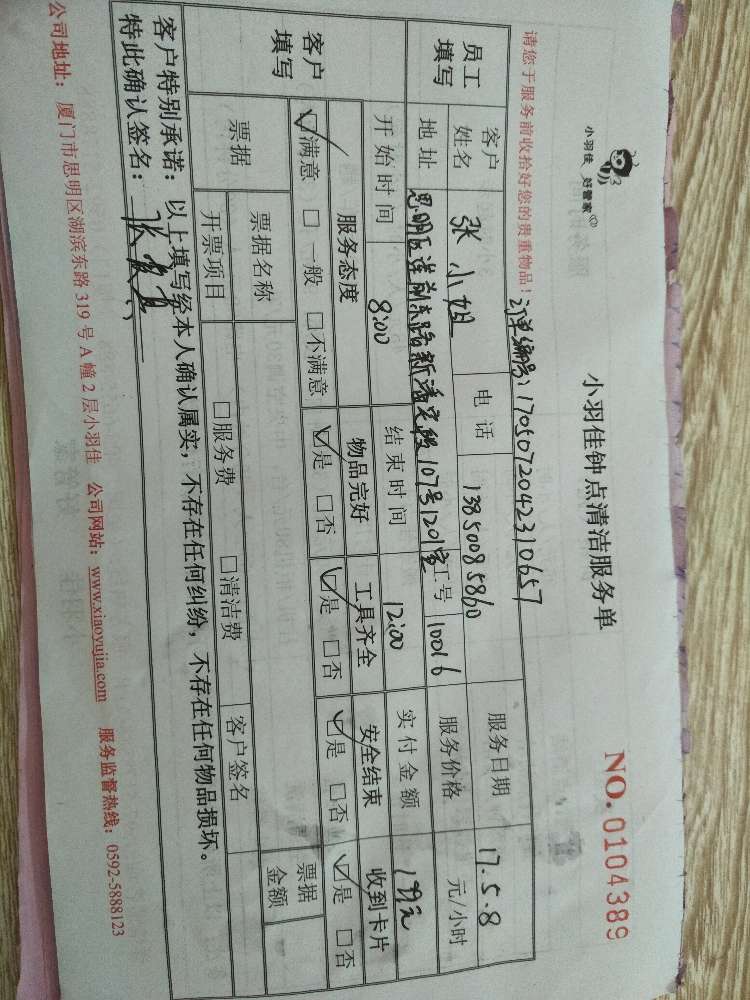 小羽佳 好管家
小羽佳钟点清洁服务单
NO.0104389
请您于服务前收拾好您的贵重物品！
订单编号:1705072042310657
员工填写
客户姓名 张小姐 电话 13850085860 服务日期 17.5.8
地址 思明区莲前东路新潘宅段107号1201室 工号 10016 服务价格 元/小时
客户填写
开始时间 8:00 结束时间 12:00 实付金额 199元
服务态度 物品完好 工具齐全 安全结束 收到卡片
☑满意 □一般 □不满意 ☑是 □否 ☑是 □否 ☑是 □否 ☑是 □否
票据 票据名称 票据金额
开票项目 □服务费 □清洁费 客户签名
客户特别承诺：以上填写经本人确认属实，不存在任何纠纷，不存在任何物品损坏。
特此确认签名：张
公司地址：厦门市思明区湖滨东路319号A幢2层小羽佳 公司网站：www.xiaoyujia.com 服务监督热线：0592-5888123